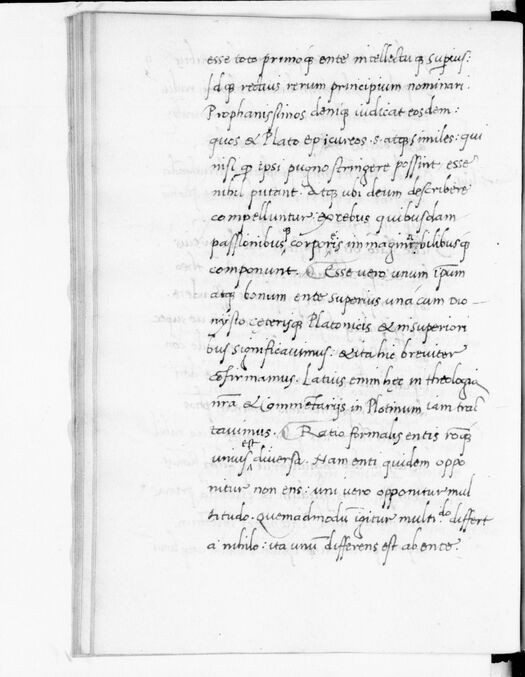 esse toto primoq́ ente intellectuq́ superius:
Idq́ rectius rerum principium nominari.
Prophanissimos deniq́ iudicat eosdem:
quos & Plato epicureos .s. atq́ similes: qui
nisi q̄ ipsi pugno stringere possint esse
nihil putant. Atq́ ubi deum describere
compelluntur ex rebus quibusdam
passionibus corporeis imaginabilibusq́
componunt. Esse vero unum ip̄um
atq́ bonum ente superius una cum Dio
nysio ceterisq́ Platonicis & in superiori
bus significavimus: & ita hic breviter
cōfirmamus. Latius enim hec in theologia
nr̄a & commentariis in Plotinum iam trac
tavimus. Ratio formalis entis
unius est diversa. Nam enti quidem oppo
nitur non ens: uni vero opponitur mul
titudo. Quemadmodū igitur multitudo differt
a nihilo: ita unū differens est ab ente.